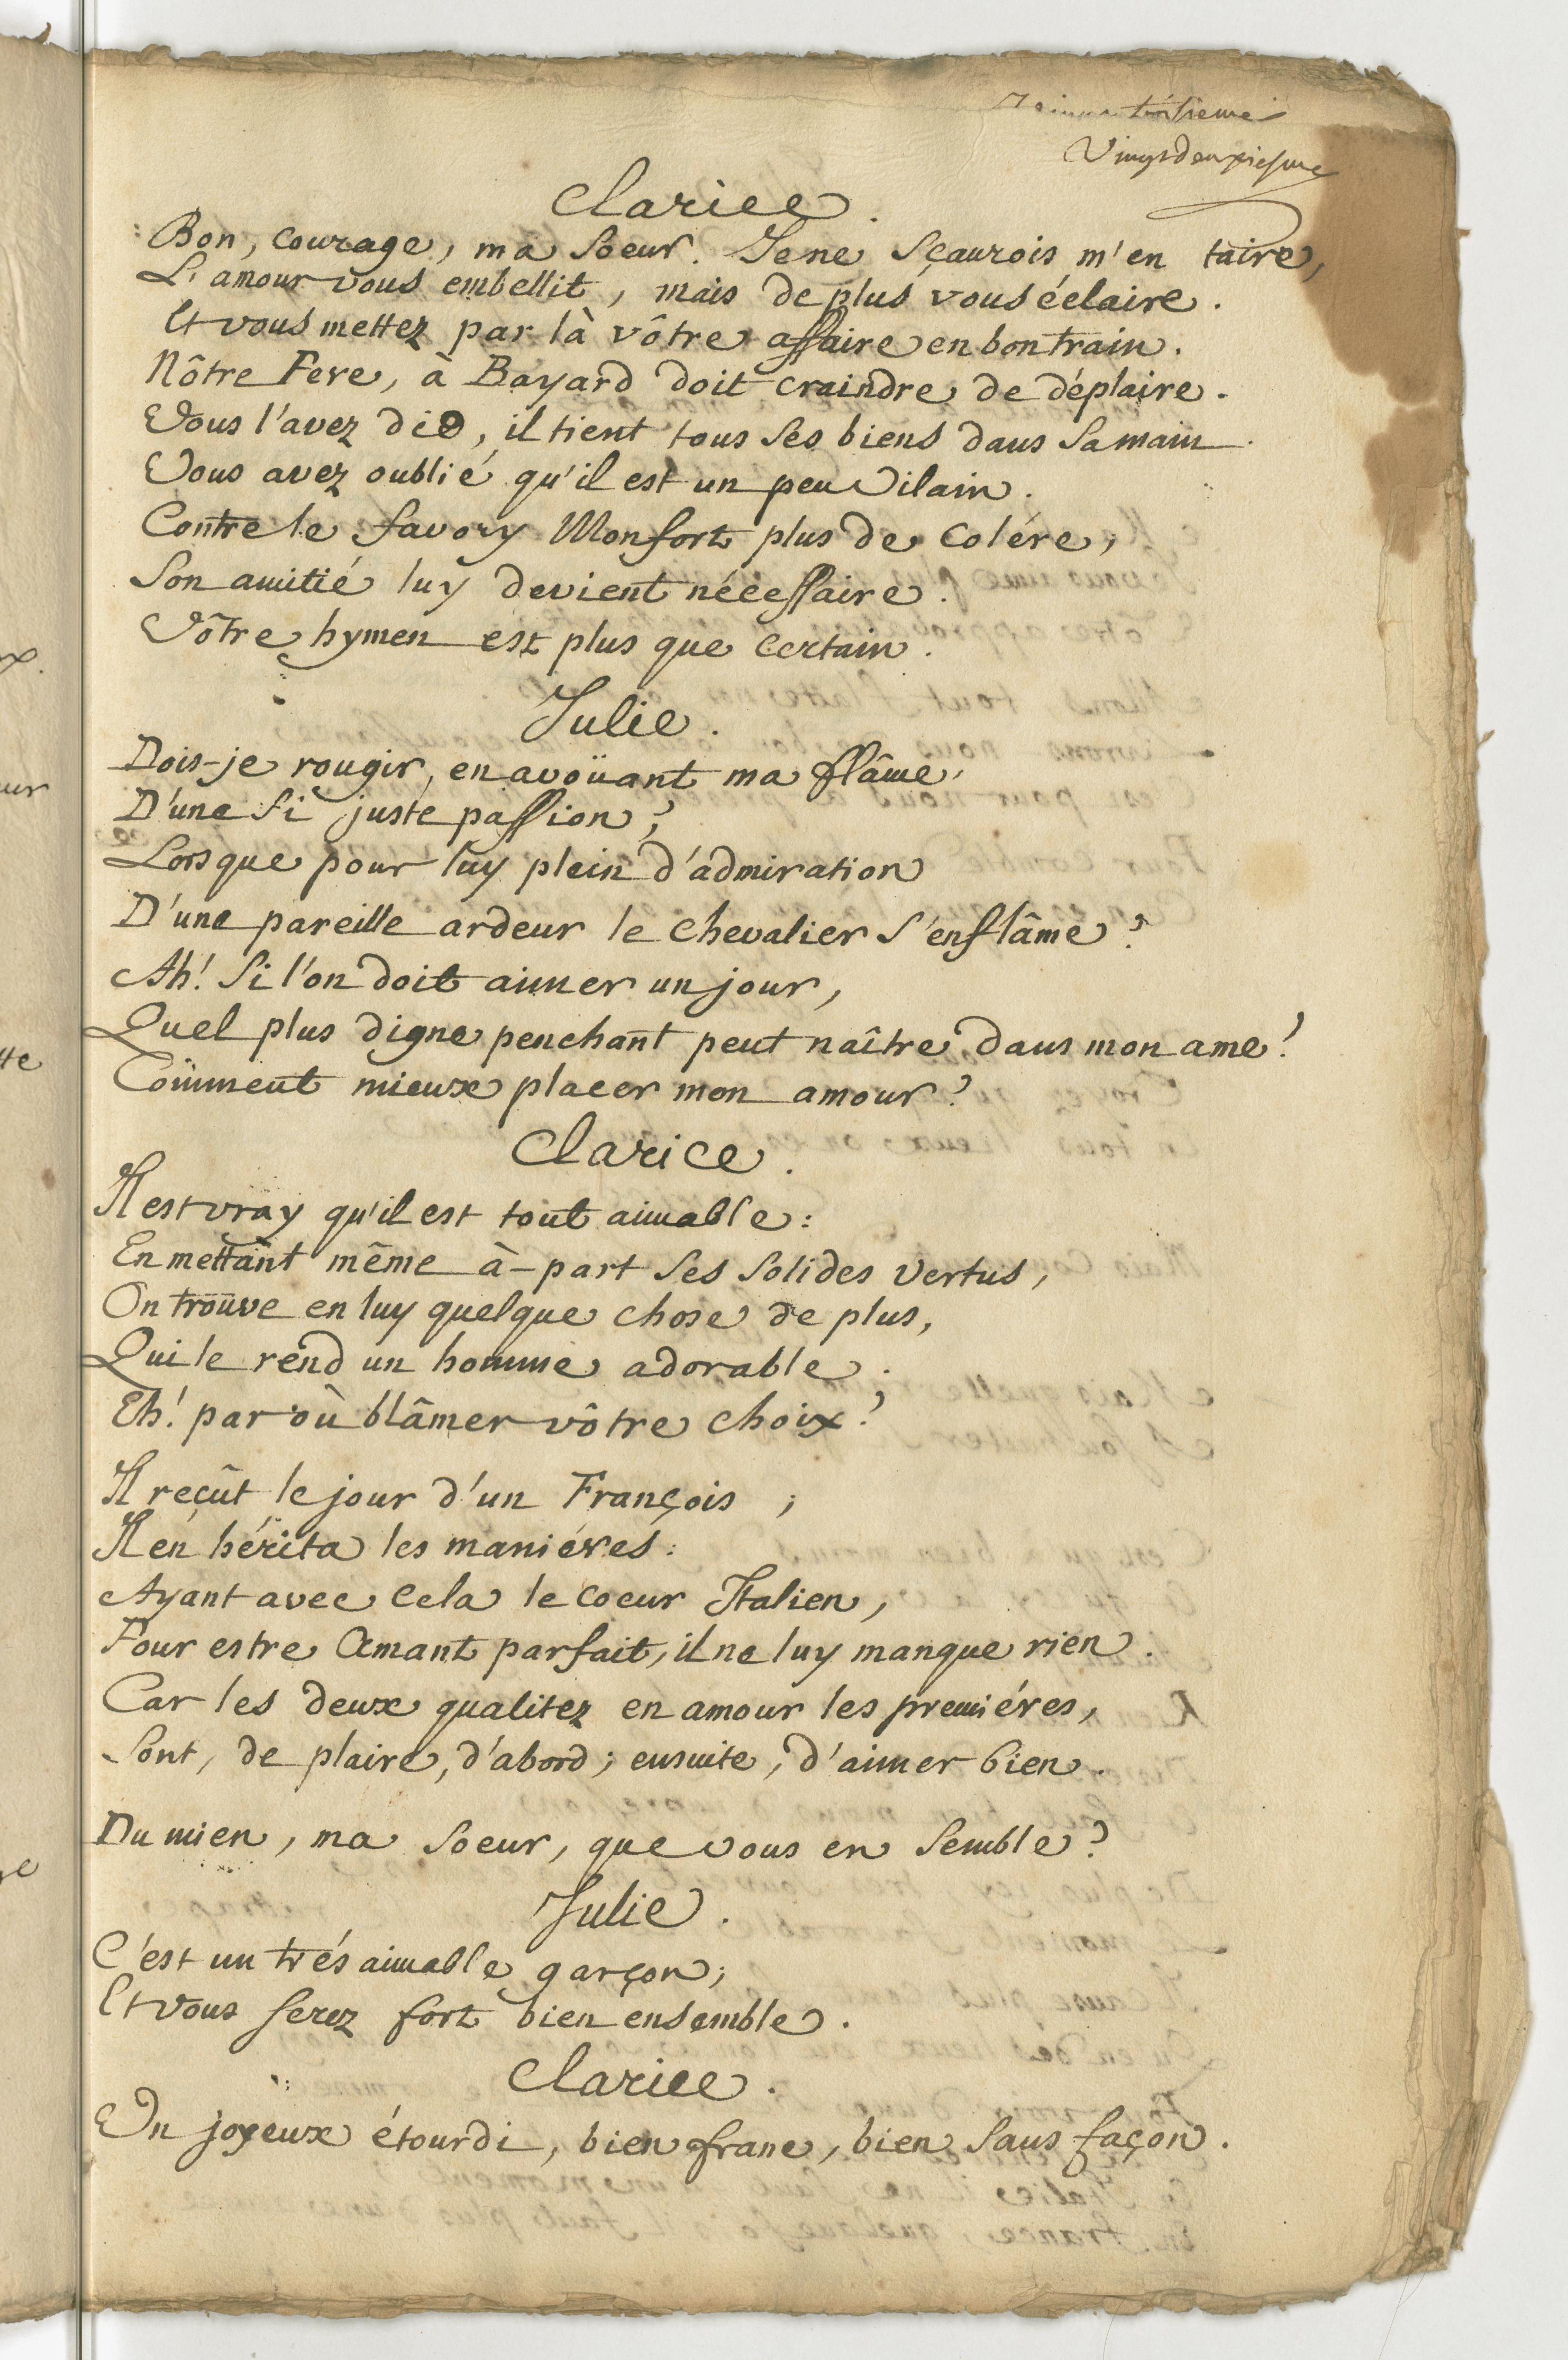 Vingtdeuxiesme
Clarice.
Bon, courage, ma Soeur. Je ne sçaurois m'en taire,
L'amour vous embellit, mais de plus vous éclaire.
Et vous mettez par là vôtre affaire en bon train.
Nôtre Pere, à Bayard doit craindre de déplaire.
Vous l'avez dit, il tient tous ses biens dans sa main.
Vous avez oublié qu'il est un peu vilain.
Contre le favory Monfort plus de colére,
Son amitié luy devient nécessaire.
Vôtre hymen est plus que certain.
Julie.
Dois-je rougir, en avoüant ma flâme,
D'une si juste passion;
Lorsque pour luy plein d'admiration
D'une pareille ardeur le chevalier s'enflâme?
Ah! si l'on doit aimer un jour,
Quel plus digne penchant peut naître dans mon ame!
Comment mieux placer mon amour?
Clarice.
Il est vray qu'il est tout aimable:
En mettant même à-part ses solides vertus,
On trouve en luy quelque chose de plus,
Qui le rend un homme adorable.
Eh! par où blâmer vôtre choix?
Il reçût le jour d'un François;
Il en hérita les maniéres:
Ayant avec cela le coeur Italien,
Pour estre Amant parfait, il ne luy manque rien.
Car les deux qualitez en amour les premiéres,
Sont, de plaire, d'abord; ensuite, d'aimer bien.
Du mien, ma soeur, que vous en semble?
Julie.
C'est un trés aimable garçon;
Et vous serez fort bien ensemble.
Clarice.
Un joyeux étourdi, bien franc, bien sans façon.